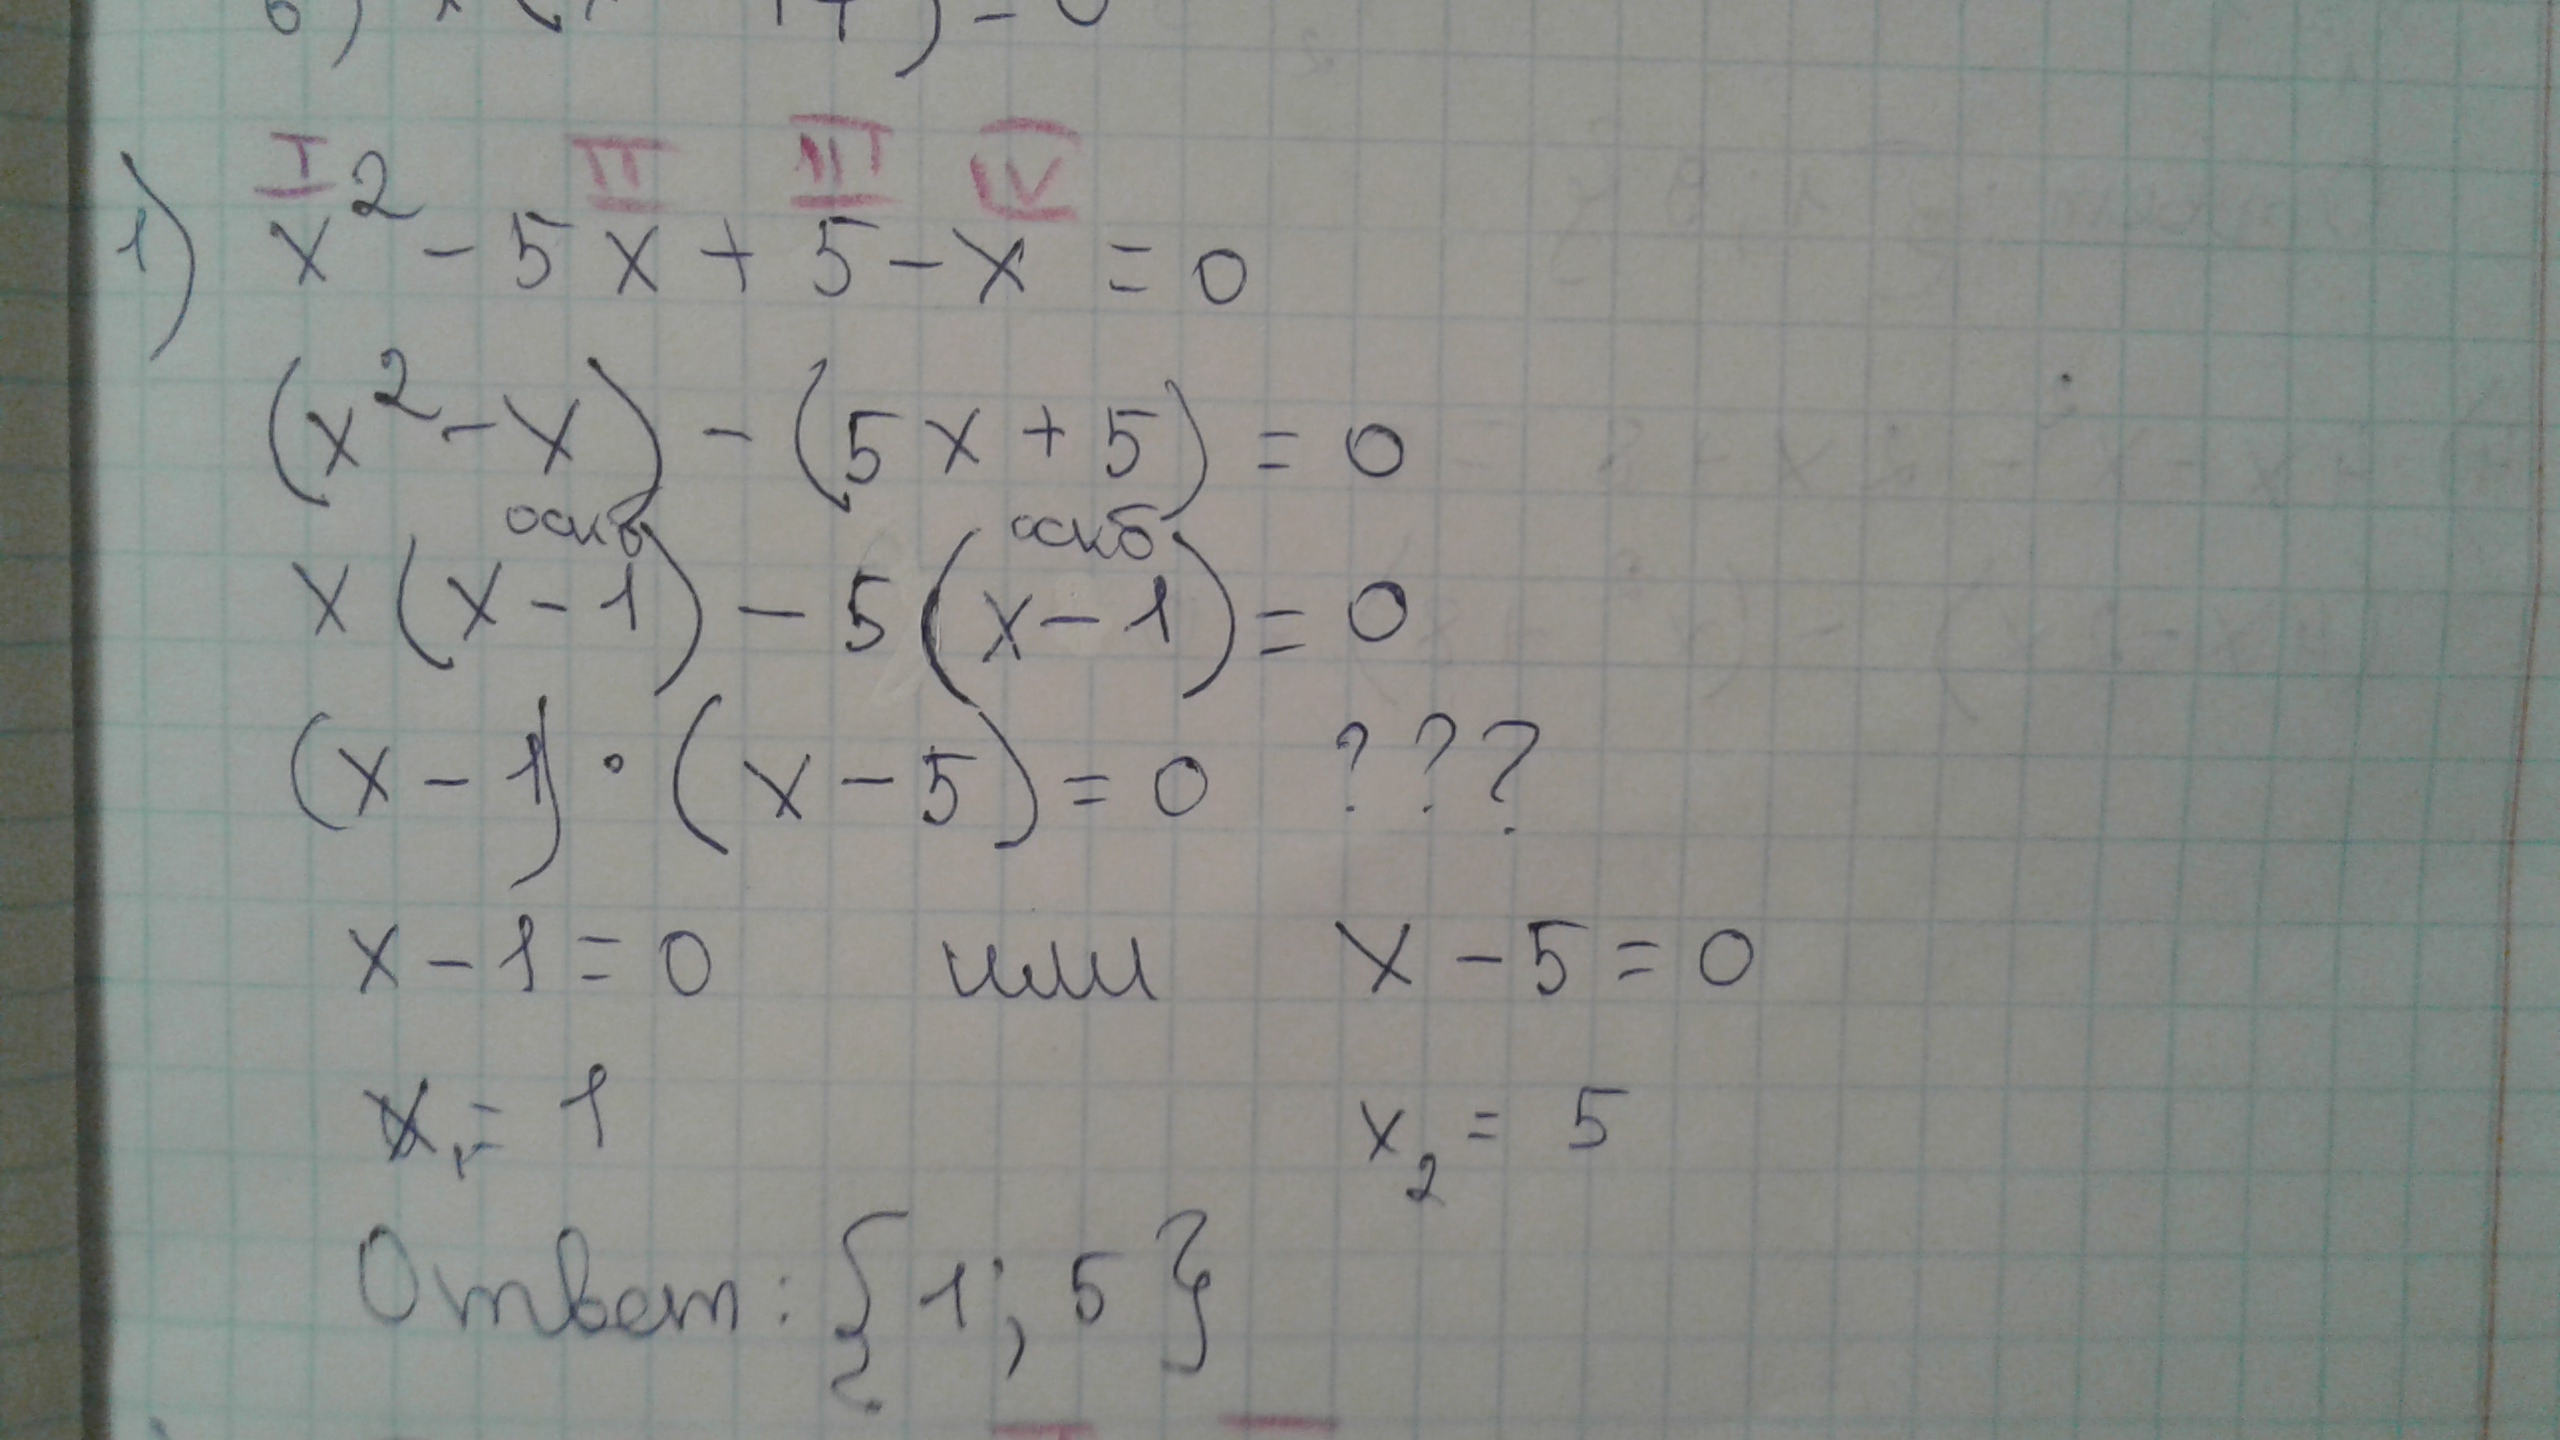 I II III IV
1) x² - 5x + 5 - x = 0
(x² - x) - (5x + 5) = 0
оскб оскб
x(x - 1) - 5(x - 1) = 0
(x - 1) · (x - 5) = 0 ???
x - 1 = 0 или x - 5 = 0
x₁ = 1 x₂ = 5
Ответ: {1; 5}